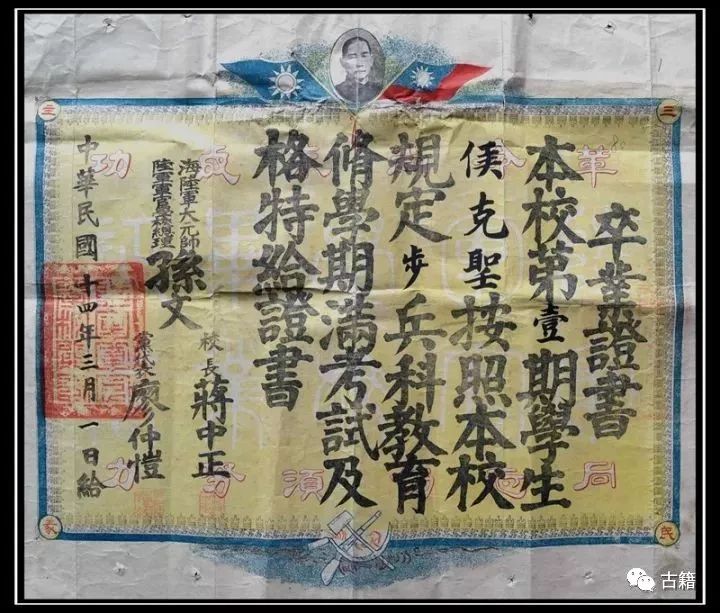 三
民
主
義
革 成功
同志 須努力
卒業證書
本校第壹期學生
侯克聖按照本校
規定步兵科教育
脩學期滿考試及
格特給證書
海陸軍大元帥
陸軍軍官學校總理 孫文
校長 蔣中正
黨代表 廖仲愷
中華民國十四年三月一日給
古籍